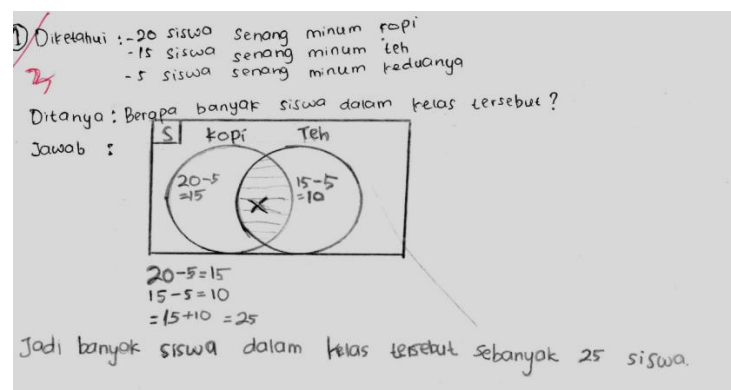 ① Diketahui : -20 siswa senang minum kopi
-15 siswa senang minum teh
-5 siswa senang minum keduanya
Ditanya : Berapa banyak siswa dalam kelas tersebut ?
Jawab :
S Kopi Teh
20-5 15-5
=15 X =10
20-5=15
15-5=10
=15+10 =25
Jadi banyak siswa dalam kelas tersebut sebanyak 25 siswa.